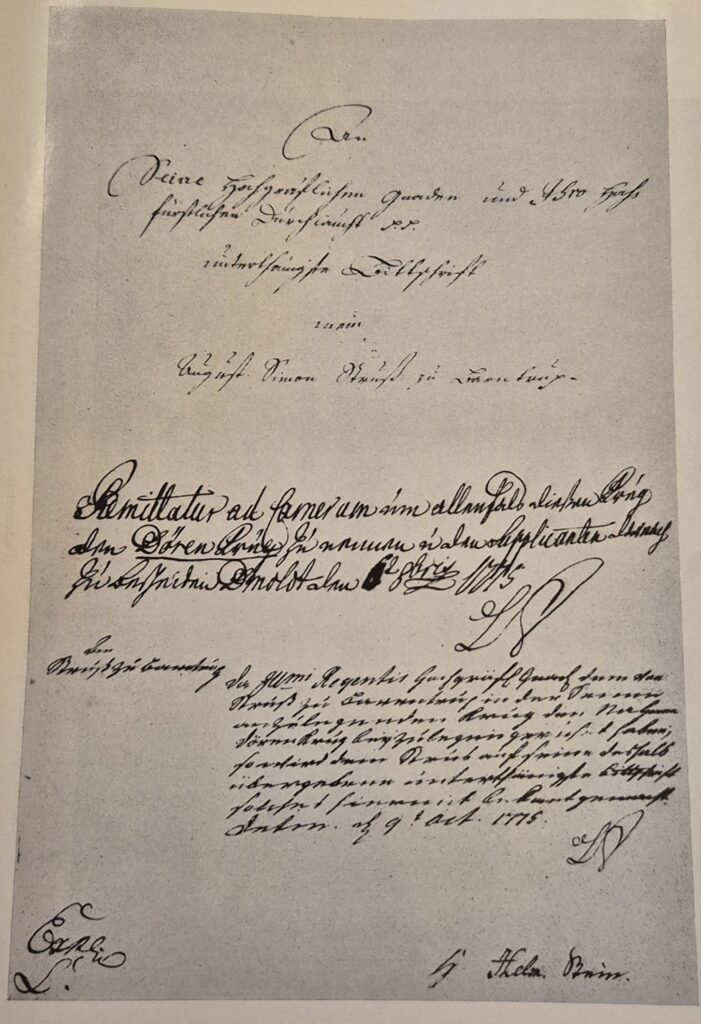 An
Seine Hochgräflichen Gnaden und Ihro Hoch
fürstlichen Durchlaucht p.p.
unterthänigste Bittschrift
mein
August Simon Struß zu Barntrup-
Remittatur ad Cameram um allenfals dießen Krug
den Dören Krug zu nennen u den Supplicanten darnach
zu bescheiden Dmoldt den 6t 8bris 1775
Struß zu Barntrup
Da Illmi Regentis Hochgräfl Gnad dem von
Struß zu Barentrup in der
anzulegenden Krug den Nahmen
Dörenkrug beyzulegen geruhet haben,
so wird dem Strus auf seine deshalb
übergebene unterthänigste Bittschrift
solches hiermit bekant gemacht.
Detm. d 9t Oct. 1775.
Exp
L.
H Thelm. Bein.